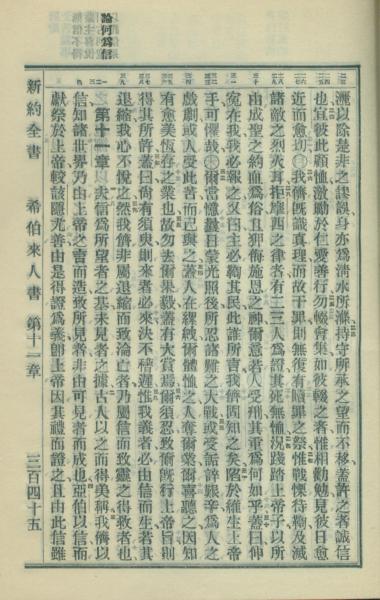 灑以除是非之謬誤身亦爲清水所滌持守所承之望而不移蓋許之者誠信
也宜彼此顧恤激勵於仁愛善行勿輟會集如彼輟之者惟相勸勉見彼日愈
近而愈切〇我儕旣識眞理而故干罪則無復有贖罪之祭惟戰慄待鞫及滅
諸敵之烈火耳拒摩西之律者有二三人爲證其死無恤況踐踏上帝子以所
由成聖之約血爲俗且狎侮施恩之神爾意若人受刑其重爲何如乎蓋曰伸
冤在我我必報之又曰主必鞫其民此誰所言我儕固知之矣陷於維生上帝
手可懼哉〇爾當憶曩日蒙光照後所忍諸難之大戰或受詬誶艱辛爲人之
戲劇或人受此苦而己與之蓋人在縲絏爾體恤之人奪爾業爾喜聽之因知
有愈美恆存之業也故勿去爾果毅蓋有大賞焉爾須忍致爾旣行上帝旨則
得其所許蓋曰尙有須臾則來者必來決不稽遲惟我義者必由信而生若其
退縮我心不悅之然我儕非屬退縮而致淪亡者乃屬信而致靈之得救者也
論何爲信
第十一章 夫信爲所望者之基未見者之據古人以之而得美稱我儕以
信知諸世界乃由上帝之言而造致所見者非由可見者而成也亞伯以信而
獻祭於上帝較該隱尤善由是得證爲義卽上帝因其禮而證之且由此信雖
新約全書 希伯來人書 第十一章 三百四十五